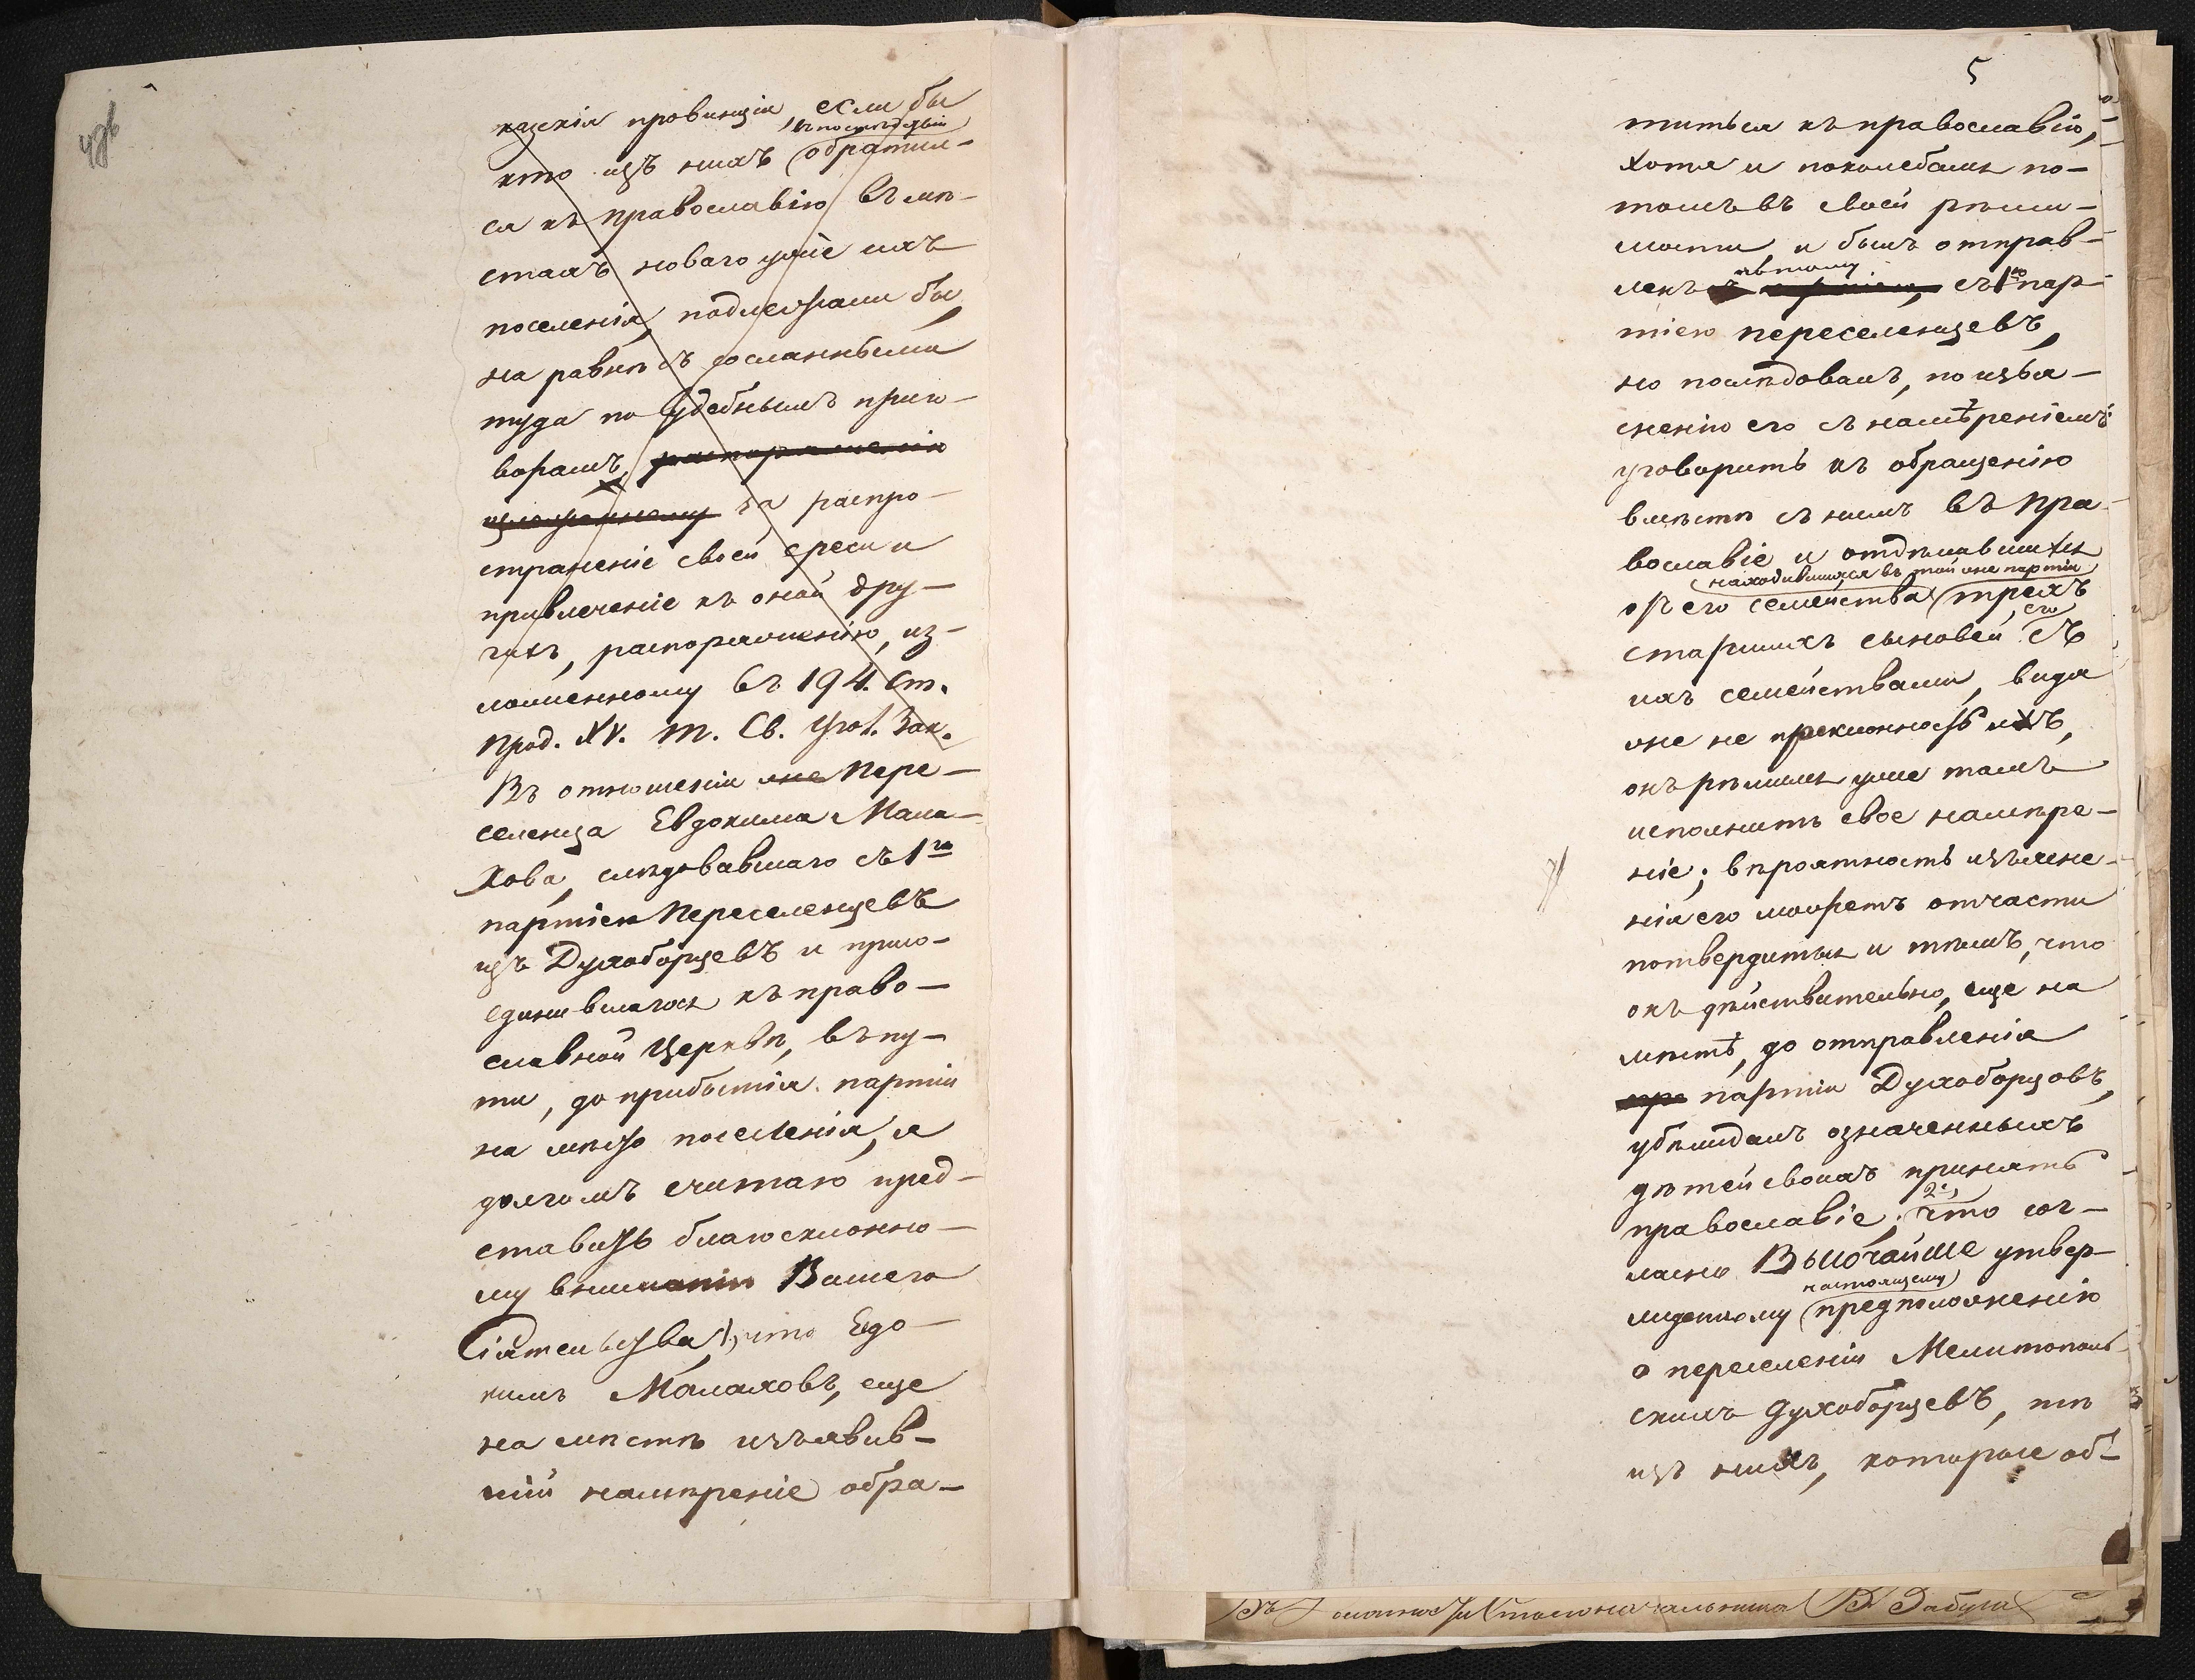 казскія провинціи если бы
въ послѣдствіи
кто изъ нихъ обратил-
ся къ православію въ мѣ-
стахъ новаго уже ихъ
поселенія, подлежали бы
на равнѣ съ сосланными
туда по судебнымъ приго-
ворамъ, распоряженію
изложенному за распро-
страненіе своей ереси и
привлеченіе къ оной дру-
гихъ, распоряженію, из-
ложенному въ 194. ст.
прод. XV. т. Св. Угол. Зак.
Въ отношеніи же Пере-
селенца Евдокима Мала-
хова, слѣдовавшаго съ 1ю
партіею Переселенцевъ
изъ Духоборцевъ и присо-
единившагося къ право-
славной Церкви, въ пу-
ти, до прибытія партіи
на мѣсто поселенія, я
долгомъ считаю пред-
ставить благосклонно-
му вниманію Вашего
Сіятельства 1, что Евдо-
кимъ Малаховъ, еще
на мѣстѣ изъявив-
шій намѣреніе обра-
5
титься къ православію,
хотя и поколебался по-
томъ въ своей рѣши-
мости и былъ отправ-
ленъ съ 1ю пар-
тіею переселенцевъ,
но послѣдовалъ, по изъя-
сненію его съ намѣреніемъ
уговорить къ обращенію
вмѣстѣ съ нимъ въ пра-
вославіе и отдѣлившихся
находившихся въ той же партіи
отъ его семейства трехъ
старшихъ сыновей его съ
ихъ семействами, видя
же не преклонность ихъ,
онъ рѣшился уже тамъ
исполнить свое намѣре-
ніе; вѣроятность изъясне-
нія его можетъ отчасти
потвердиться и тѣмъ, что
онъ дѣйствительно, еще на
мѣстѣ, до отправленія
пре партіи Духоборцовъ,
убѣждалъ означенныхъ
дѣтей своихъ принять
православіе; 2е, что сог-
ласно Высочайше утвер-
настоящему
жденному предположенію
о переселеніи Мелитополь-
скихъ Духоборцевъ, тѣ
изъ нихъ, которые об-